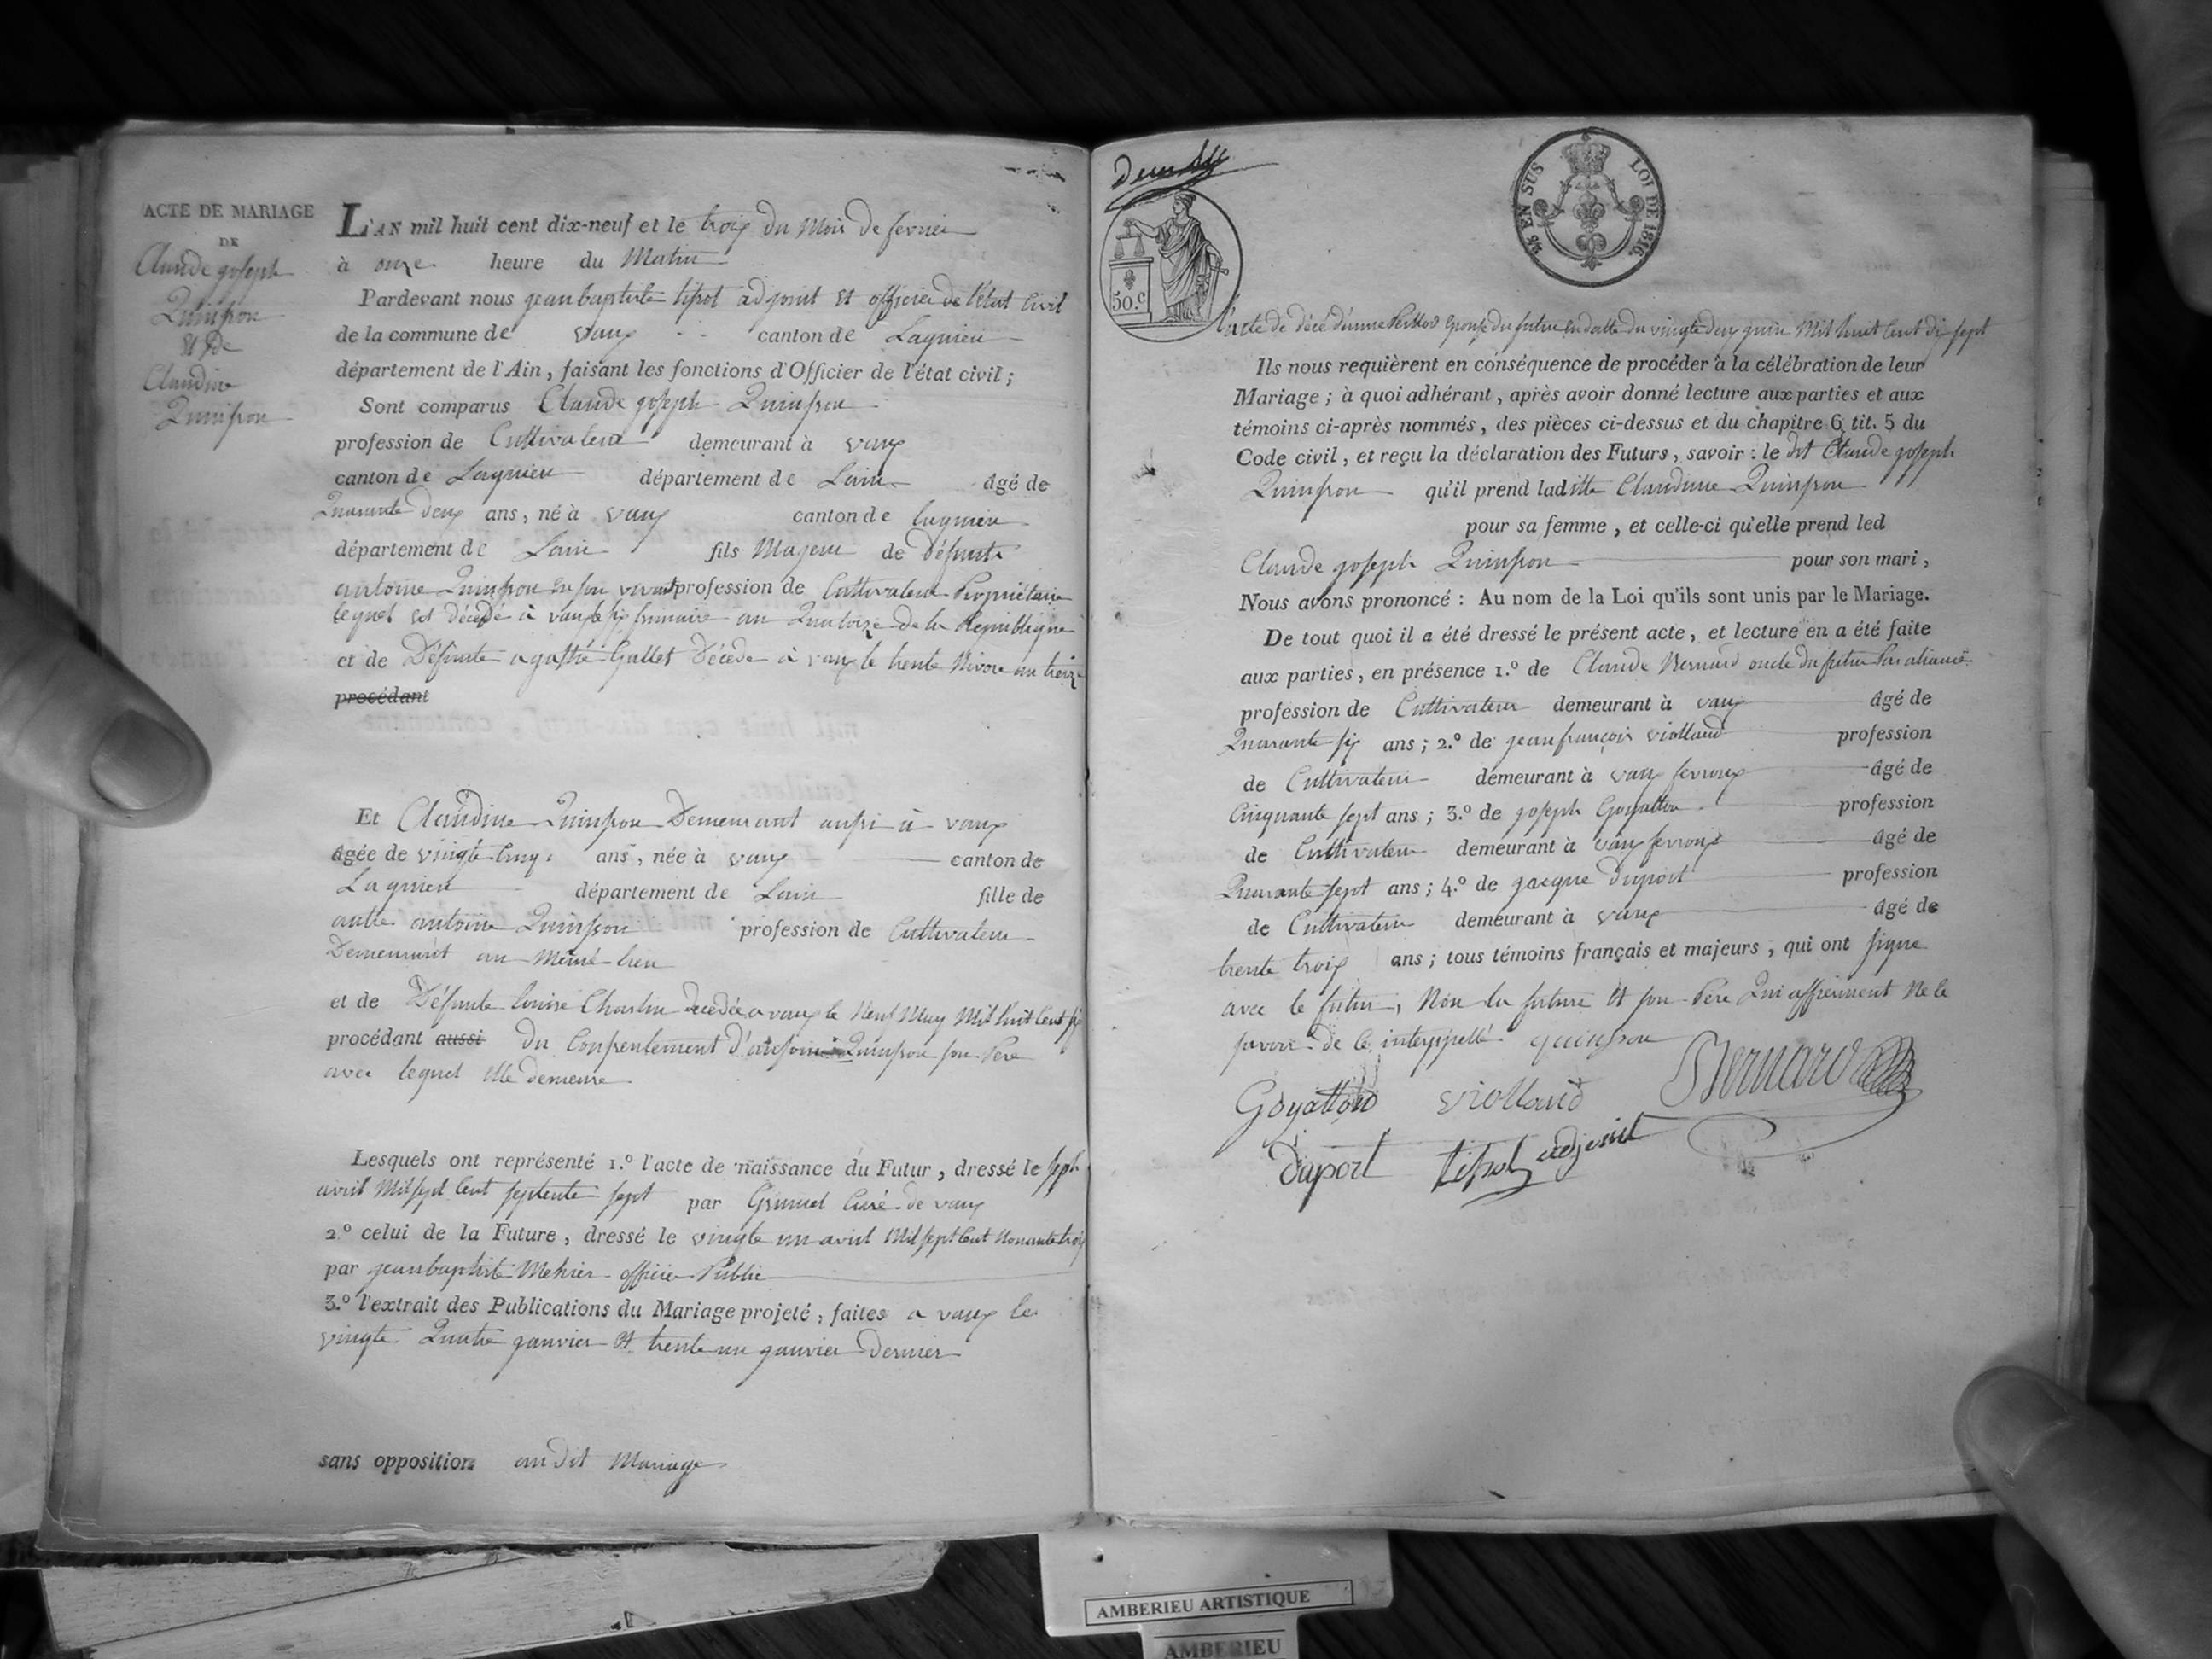 ACTE DE MARIAGE
DE
Claude joseph
Quinson
et de
Claudine
Quinson
L'AN mil huit cent dix-neuf et le trois du Mois de fevrier
à onze heure du Matin
Pardevant nous jean baptiste tissot adjoint et officier de l'état Civil
de la commune de vaux canton de Lagnieu
département de l'Ain, faisant les fonctions d'Officier de l'état civil;
Sont comparus Claude joseph Quinson
profession de Cultivateur demeurant à vaux
canton de Lagnieu département de Lain âgé de
Quarante deux ans, né à vaux canton de lagnieu
département de Lain fils Majeur de défunt
antoine Quinson en son vivant profession de Cultivateur Propriétaire
lequel est décédé à vaux le six frimaire an Quatorze de la République
et de Défunte agathe Gallet Décédé à vaux le trente Nivose an treize
procédant
Et Claudine Quinson Demeurant aussi à vaux
âgée de vingte cinq ans, née à vaux canton de
Lagnieu département de Lain fille de
autre antoine Quinson profession de Cultivateur
Demeurant au même lieu
et de Défunte Louise Charlin décédée a vaux le Neuf May Mil huit Cent six
procédant aussi du Consentement d'antoine Quinson son Père
avec lequel elle demeure
Lesquels ont représenté 1.º l'acte de naissance du Futur, dressé le sept
avril Mil sept Cent septente sept par Curé de vaux
2.º celui de la Future, dressé le vingte un avril Mil sept Cent Nonante trois
par jean baptiste officier Public
3.º l'extrait des Publications du Mariage projeté, faites a vaux le
vingte Quatre janvier et trente un janvier dernier
sans opposition au dit Mariage
50.c
EN SUS
LOI DE 1816.
l'acte de décé d'anne épouse du futur en datte du vingte deux juin Mil huit Cent dix sept
Ils nous requièrent en conséquence de procéder à la célébration de leur
Mariage; à quoi adhérant, après avoir donné lecture aux parties et aux
témoins ci-après nommés, des pièces ci-dessus et du chapitre 6, tit. 5 du
Code civil, et reçu la déclaration des Futurs, savoir: le dit Claude joseph
Quinson qu'il prend laditte Claudine Quinson
pour sa femme, et celle-ci qu'elle prend led
Claude joseph Quinson pour son mari,
Nous avons prononcé: Au nom de la Loi qu'ils sont unis par le Mariage.
De tout quoi il a été dressé le présent acte, et lecture en a été faite
aux parties, en présence 1.º de Claude Bernard oncle du futur Par aliance
profession de Cultivateur demeurant à vaux âgé de
Quarante six ans; 2.º de jean françois violland profession
de Cultivateur demeurant à vaux fevroux âgé de
Cinquante sept ans; 3.º de joseph Goyatton profession
de Cultivateur demeurant à vaux fevroux âgé de
Quarante sept ans; 4.º de jacque duport profession
de Cultivateur demeurant à vaux âgé de
trente trois ans; tous témoins français et majeurs, qui ont signe
avec le futur, Non la future et son Père Qui affirment Ne le
savoir de ce interppellé quinson
Bernard
Goyatton violland
duport tissot adjoint
AMBERIEU ARTISTIQUE
AMBERIEU